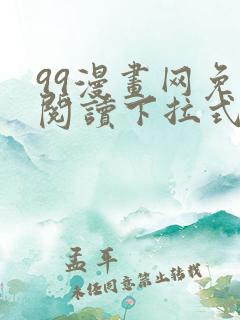 99漫畫网免
閱讀下拉式
孟平
未经同意禁止转载